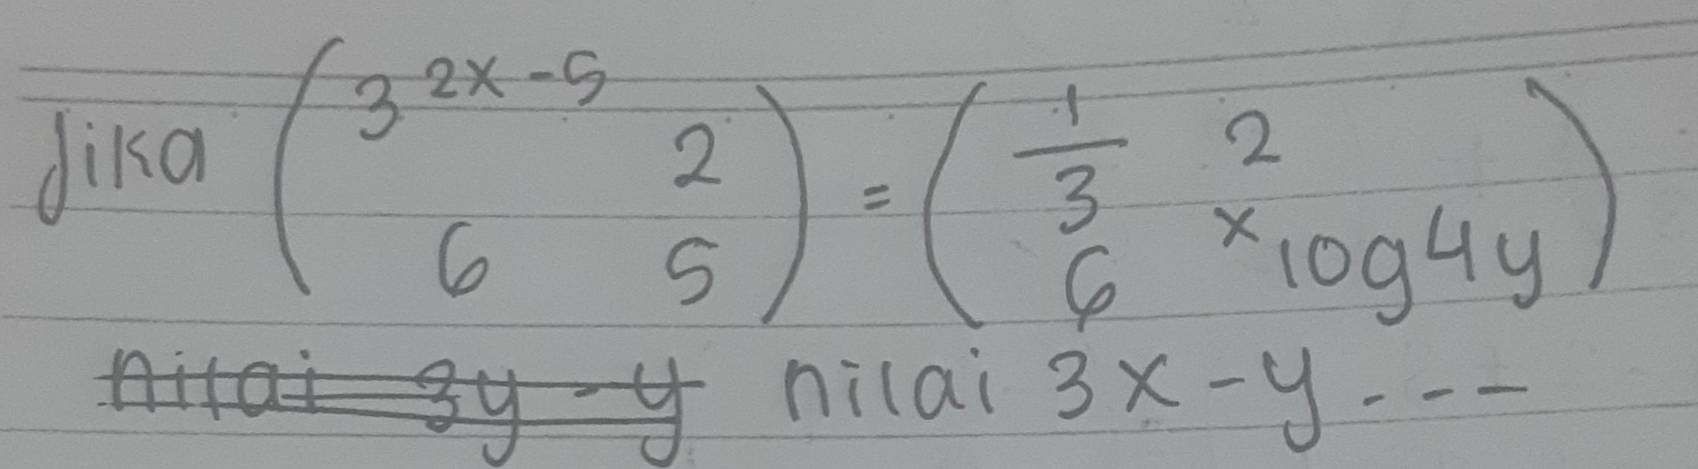 Jika ( 3^{2x-5} 2 ) = ( 1/3 2 )
( 6 5 ) ( 6 ^{x}log4y )
nilai 3y - y nilai 3x - y ----